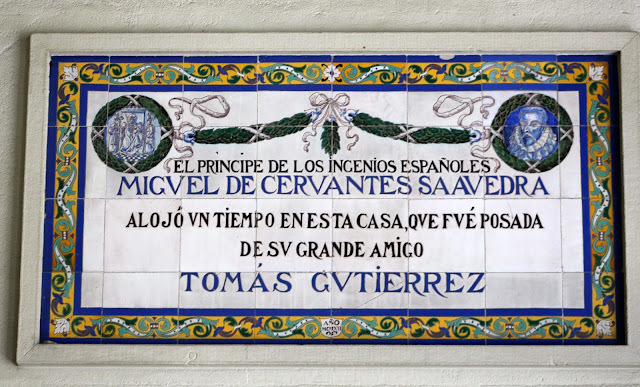 EL PRÍNCIPE DE LOS INGENIOS ESPAÑOLES
MIGVEL DE CERVANTES SAAVEDRA
ALOJÓ VN TIEMPO EN ESTA CASA, QVE FVÉ POSADA
DE SV GRANDE AMIGO
TOMÁS GVTIERREZ
AÑO